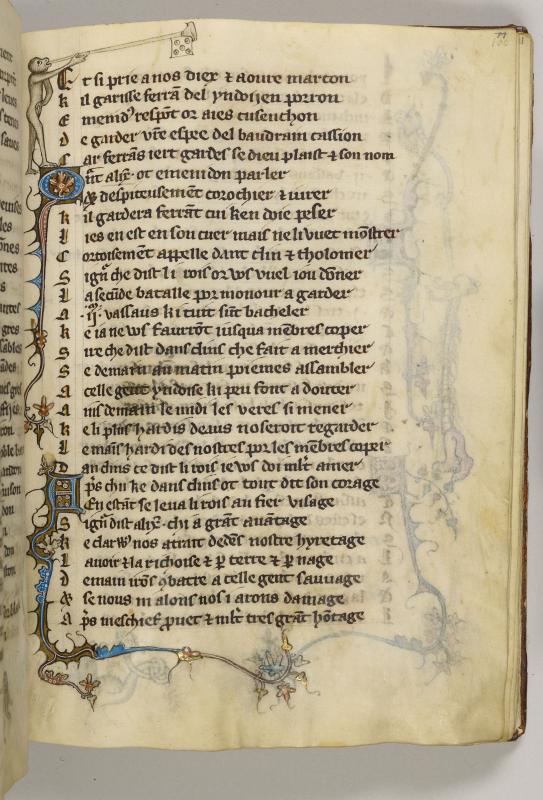 Et si prie a nos diex & aoure marcon
k il garisse ferrā del yndosien porron
E menid⁹ respōt or aies
D e garder vr̄e espee del baudrain cassion
C ar ferrās iert gardes se dieu plaist & son nom
Q̄t alix̄· ot emenidon parler
& despiteusemēt corochier & iurer
k il gardera ferrāt cui ken doie peser
L ies en est en son cuer mais ne li vuet mōstrer
C ortoisemēt appelle danc clin & tholomer
S ignʳ che dist li rois or vos vuel iou dōner
L a secūde batalle por mouour a garder
A ·ij· vassaus ki tuit sūt bacheler
k e ia ne vos faurrōt iusqua mēbres coper
S ire che dist dans clins che fait a merchier
S e demain au matin poiemes assambler
A celle gent yndoise ki peu font a douter
A ins demain le midi les veres si mener
k e li plus hardis deaus noseroit regarder
L e mains hardi des nostres por les mēbres coper
D an clins ce dist li rois ie vos doi ml̄t amer
A p̄s chu ke dans clins ot tout dit son corage
En estāt se leua li rois au fier visage
S ignʳ dist alix̄· chi a grāt auātage
k e clarvus nos atrait dedēs nostre hyretage
L auoir & la richoise & p̄ terre & p̄ nage
D emain irōs ꝯbatre a celle gent sauuage
& se nous ni alons nos i arons damage
A p̄s meschief pruet & ml̄t tres grāt hōtage